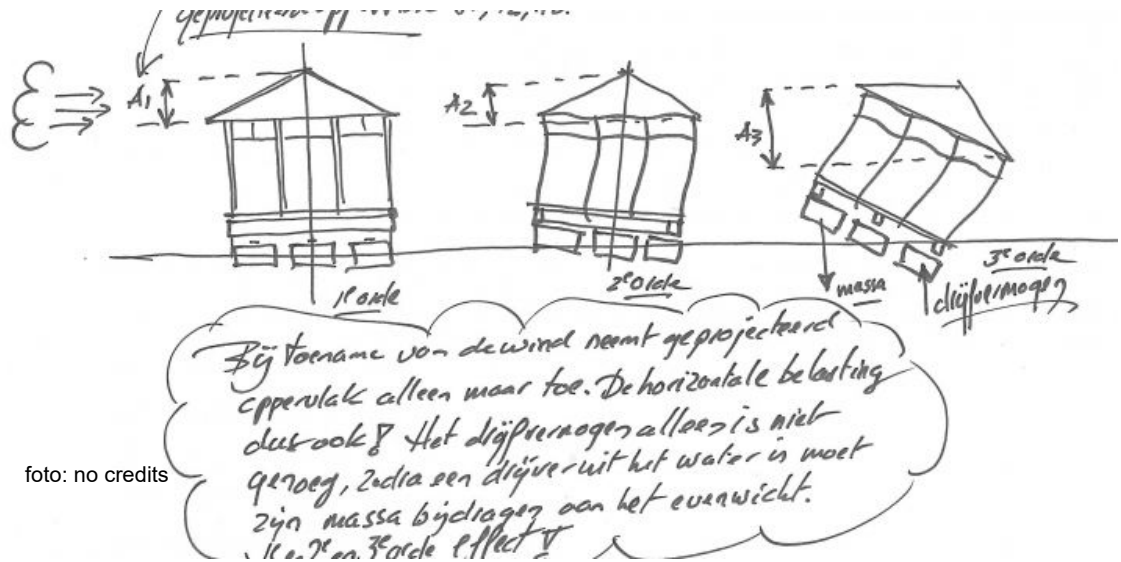 A1
A2
A3
1e orde
2e orde
3e orde
massa
drijfvermogen
Bij toename van de wind neemt geprojecteerd
oppervlak alleen maar toe. De horizontale belasting
dus ook! Het drijfvermogen alleen is niet
genoeg, zodra een drijver uit het water is moet
zijn massa bijdragen aan het evenwicht.
1e en 2e en 3e orde effect
foto: no credits